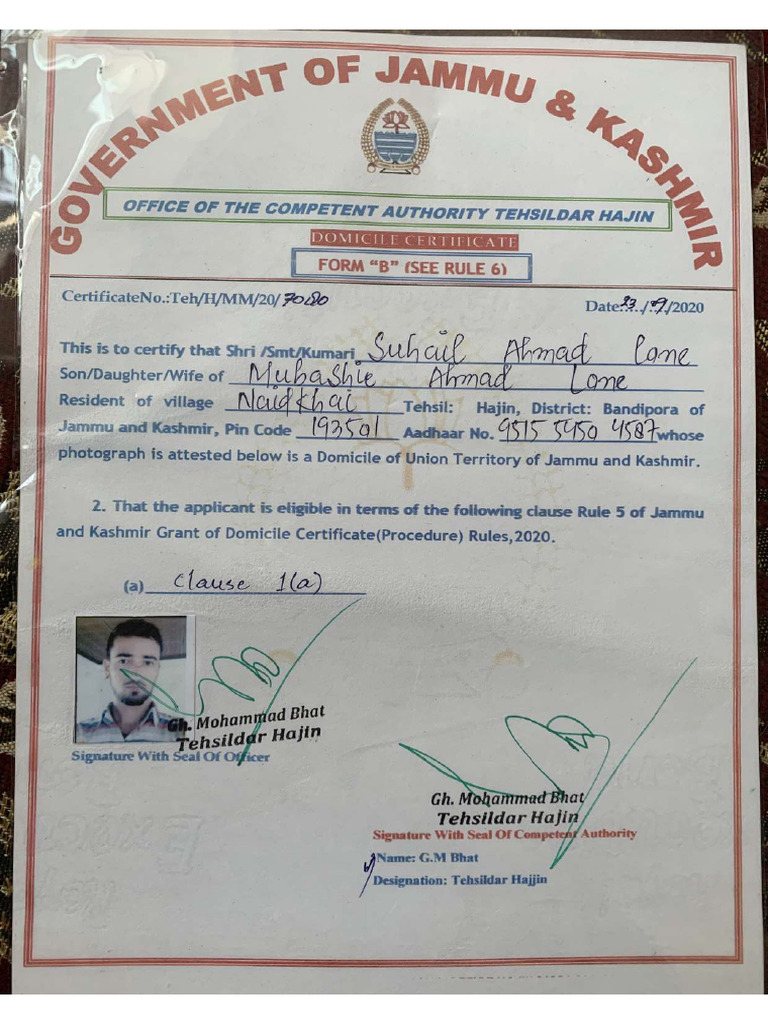 GOVERNMENT OF JAMMU & KASHMIR
OFFICE OF THE COMPETENT AUTHORITY TEHSILDAR HAJIN
DOMICILE CERTIFICATE
FORM "B" (SEE RULE 6)
CertificateNo.:Teh/H/MM/20/7080
Date:23/9/2020
This is to certify that Shri /Smt/Kumari Suhail Ahmad Lone
Son/Daughter/Wife of Mubashir Ahmad Lone
Resident of village Naidkhai Tehsil: Hajin, District: Bandipora of
Jammu and Kashmir, Pin Code 193501 Aadhaar No. 9515 5450 4587 whose
photograph is attested below is a Domicile of Union Territory of Jammu and Kashmir.
2. That the applicant is eligible in terms of the following clause Rule 5 of Jammu
and Kashmir Grant of Domicile Certificate(Procedure) Rules,2020.
(a) Clause 1(a)
Gh. Mohammad Bhat
Tehsildar Hajin
Signature With Seal Of Officer
Gh. Mohammad Bhat
Tehsildar Hajin
Signature With Seal Of Competent Authority
Name: G.M Bhat
Designation: Tehsildar Hajjin